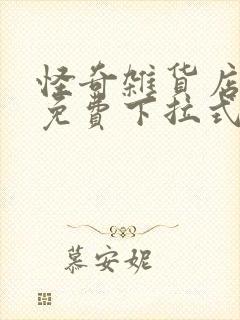 怪奇雑貨店
免費下拉式
慕安妮